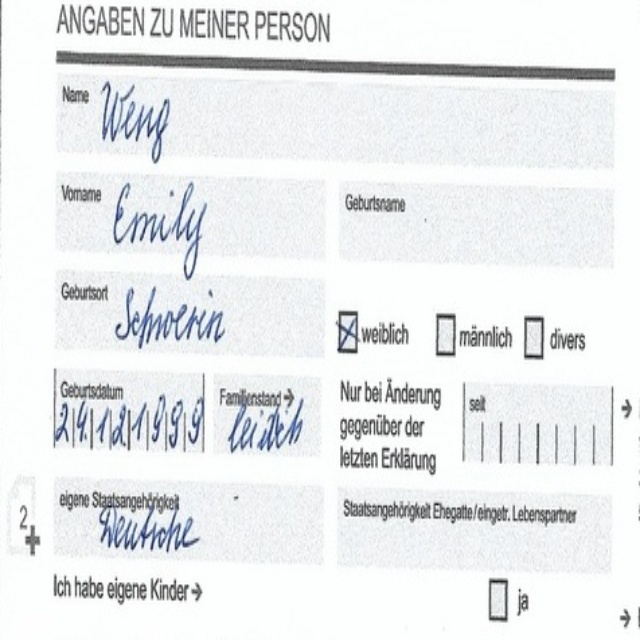 ANGABEN ZU MEINER PERSON
Name Weng
Vorname Emily
Geburtsname
Geburtsort Schwerin
weiblich männlich divers
Geburtsdatum 24121999
Familienstand →
Nur bei Änderung
gegenüber der
letzten Erklärung
seit
→
eigene Staatsangehörigkeit Deutsche
Staatsangehörigkeit Ehegatte/eingetr. Lebenspartner
2
Ich habe eigene Kinder →
ja
→